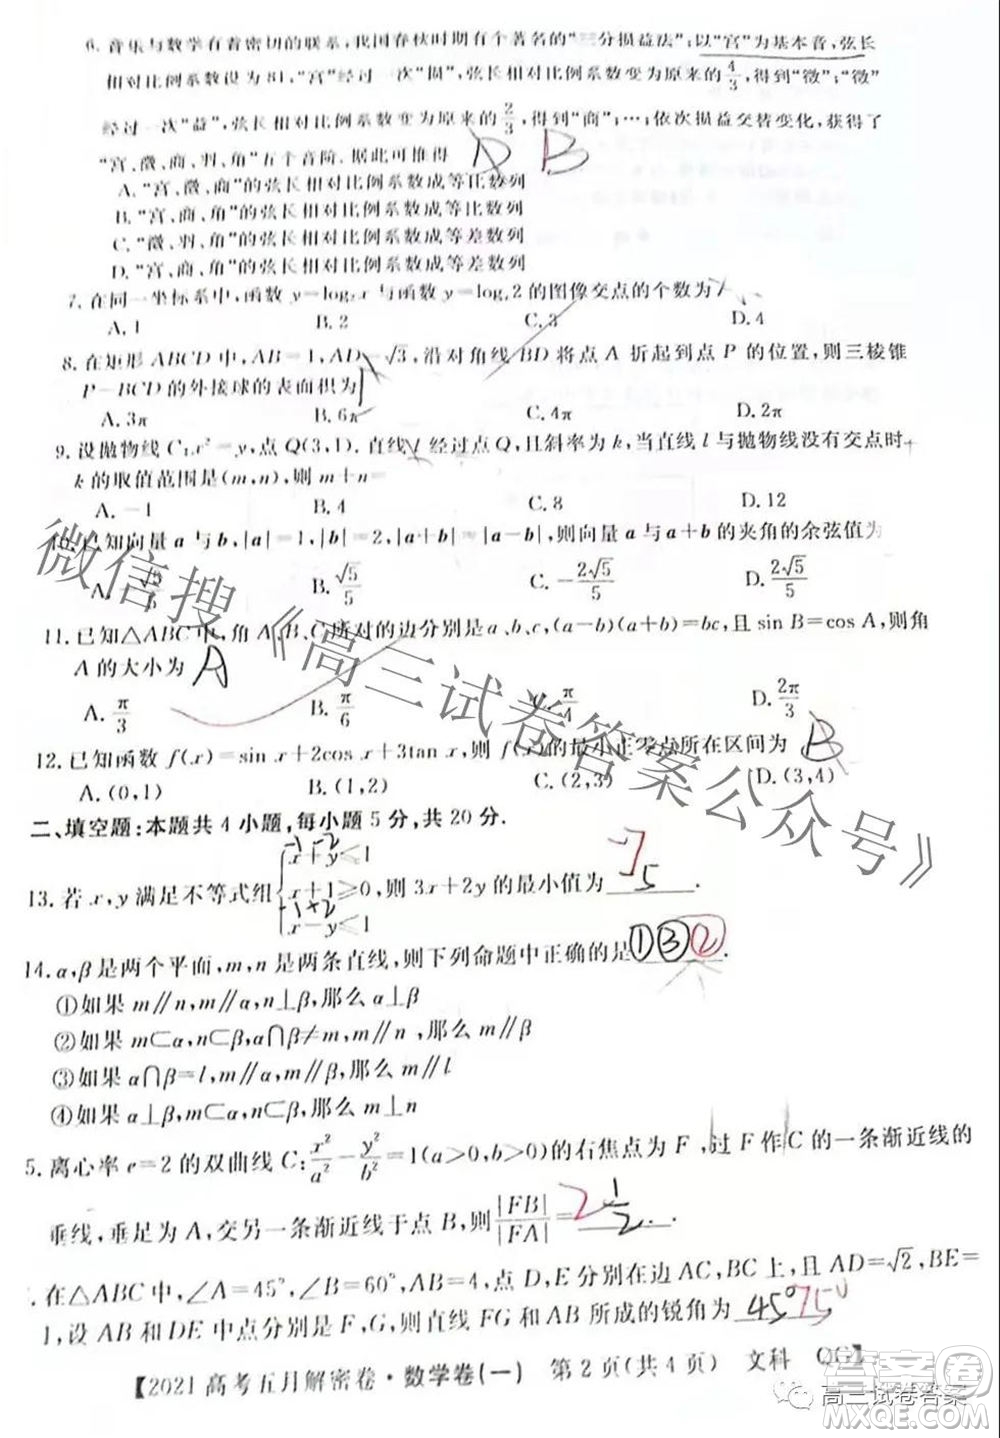 6. 音乐与数学有着密切的联系,我国春秋时期有个著名的“三分损益法”:以“宫”为基本音,弦长
相对比例系数设为81,“宫”经过一次“损”,弦长相对比例系数变为原来的4/3,得到“徵”;“徵”
经过一次“益”,弦长相对比例系数变为原来的2/3,得到“商”;…;依次损益交替变化,获得了
“宫、徵、商、羽、角”五个音阶.据此可推得 D B
A.“宫、徵、商”的弦长相对比例系数成等比数列
B.“宫、商、角”的弦长相对比例系数成等比数列
C.“徵、羽、角”的弦长相对比例系数成等差数列
D.“宫、商、角”的弦长相对比例系数成等差数列
7. 在同一坐标系中,函数 y=log₂x 与函数 y=logₓ2 的图像交点的个数为
A. 1 B. 2 C. 3 D. 4
8. 在矩形 ABCD 中,AB=1,AD=√3,沿对角线 BD 将点 A 折起到点 P 的位置,则三棱锥
P-BCD 的外接球的表面积为
A. 3π B. 6π C. 4π D. 2π
9. 设抛物线 C:x²=y,点 Q(3,1).直线 l 经过点 Q,且斜率为 k,当直线 l 与抛物线没有交点时
k 的取值范围是(m,n),则 m+n=
A. -1 B. 4 C. 8 D. 12
10. 已知向量 a 与 b,|a|=1,|b|=2,|a+b|=|a-b|,则向量 a 与 a+b 的夹角的余弦值为
A. -√5/5 B. √5/5 C. -2√5/5 D. 2√5/5
11. 已知△ABC 中,角 A、B、C 所对的边分别是 a、b、c,(a-b)(a+b)=bc,且 sin B=cos A,则角
A 的大小为 A
A. π/3 B. π/6 C. π/4 D. 2π/3
12. 已知函数 f(x)=sin x+2cos x+3tan x,则 f(x)的最小正零点所在区间为 B
A. (0,1) B. (1,2) C. (2,3) D. (3,4)
二、填空题:本题共 4 小题,每小题 5 分,共 20 分.
13. 若 x,y 满足不等式组{x+y≤1 x+1≥0 x-y≤1,则 3x+2y 的最小值为 -7 5 .
14. α,β 是两个平面,m,n 是两条直线,则下列命题中正确的是 ①③② .
①如果 m∥n,m∥α,n⊥β,那么 α⊥β
②如果 m⊂α,n⊂β,α∩β≠m,m∥n,那么 α∥β
③如果 α∩β=l,m∥α,m∥β,那么 m∥l
④如果 α⊥β,m⊂α,n⊂β,那么 m⊥n
5. 离心率 e=2 的双曲线 C:x²/a²-y²/b²=1(a>0,b>0)的右焦点为 F,过 F 作 C 的一条渐近线的
垂线,垂足为 A,交另一条渐近线于点 B,则|FB|/|FA|= 2 1/2 .
. 在△ABC 中,∠A=45°,∠B=60°,AB=4,点 D,E 分别在边 AC,BC 上,且 AD=√2,BE=
1,设 AB 和 DE 中点分别是 F,G,则直线 FG 和 AB 所成的锐角为 45° 75°
【2021 高考五月解密卷·数学卷(一) 第 2 页(共 4 页) 文科 QG】
微信搜《高三试卷答案公众号》
高三试卷答案
答案圈
MXQE.COM